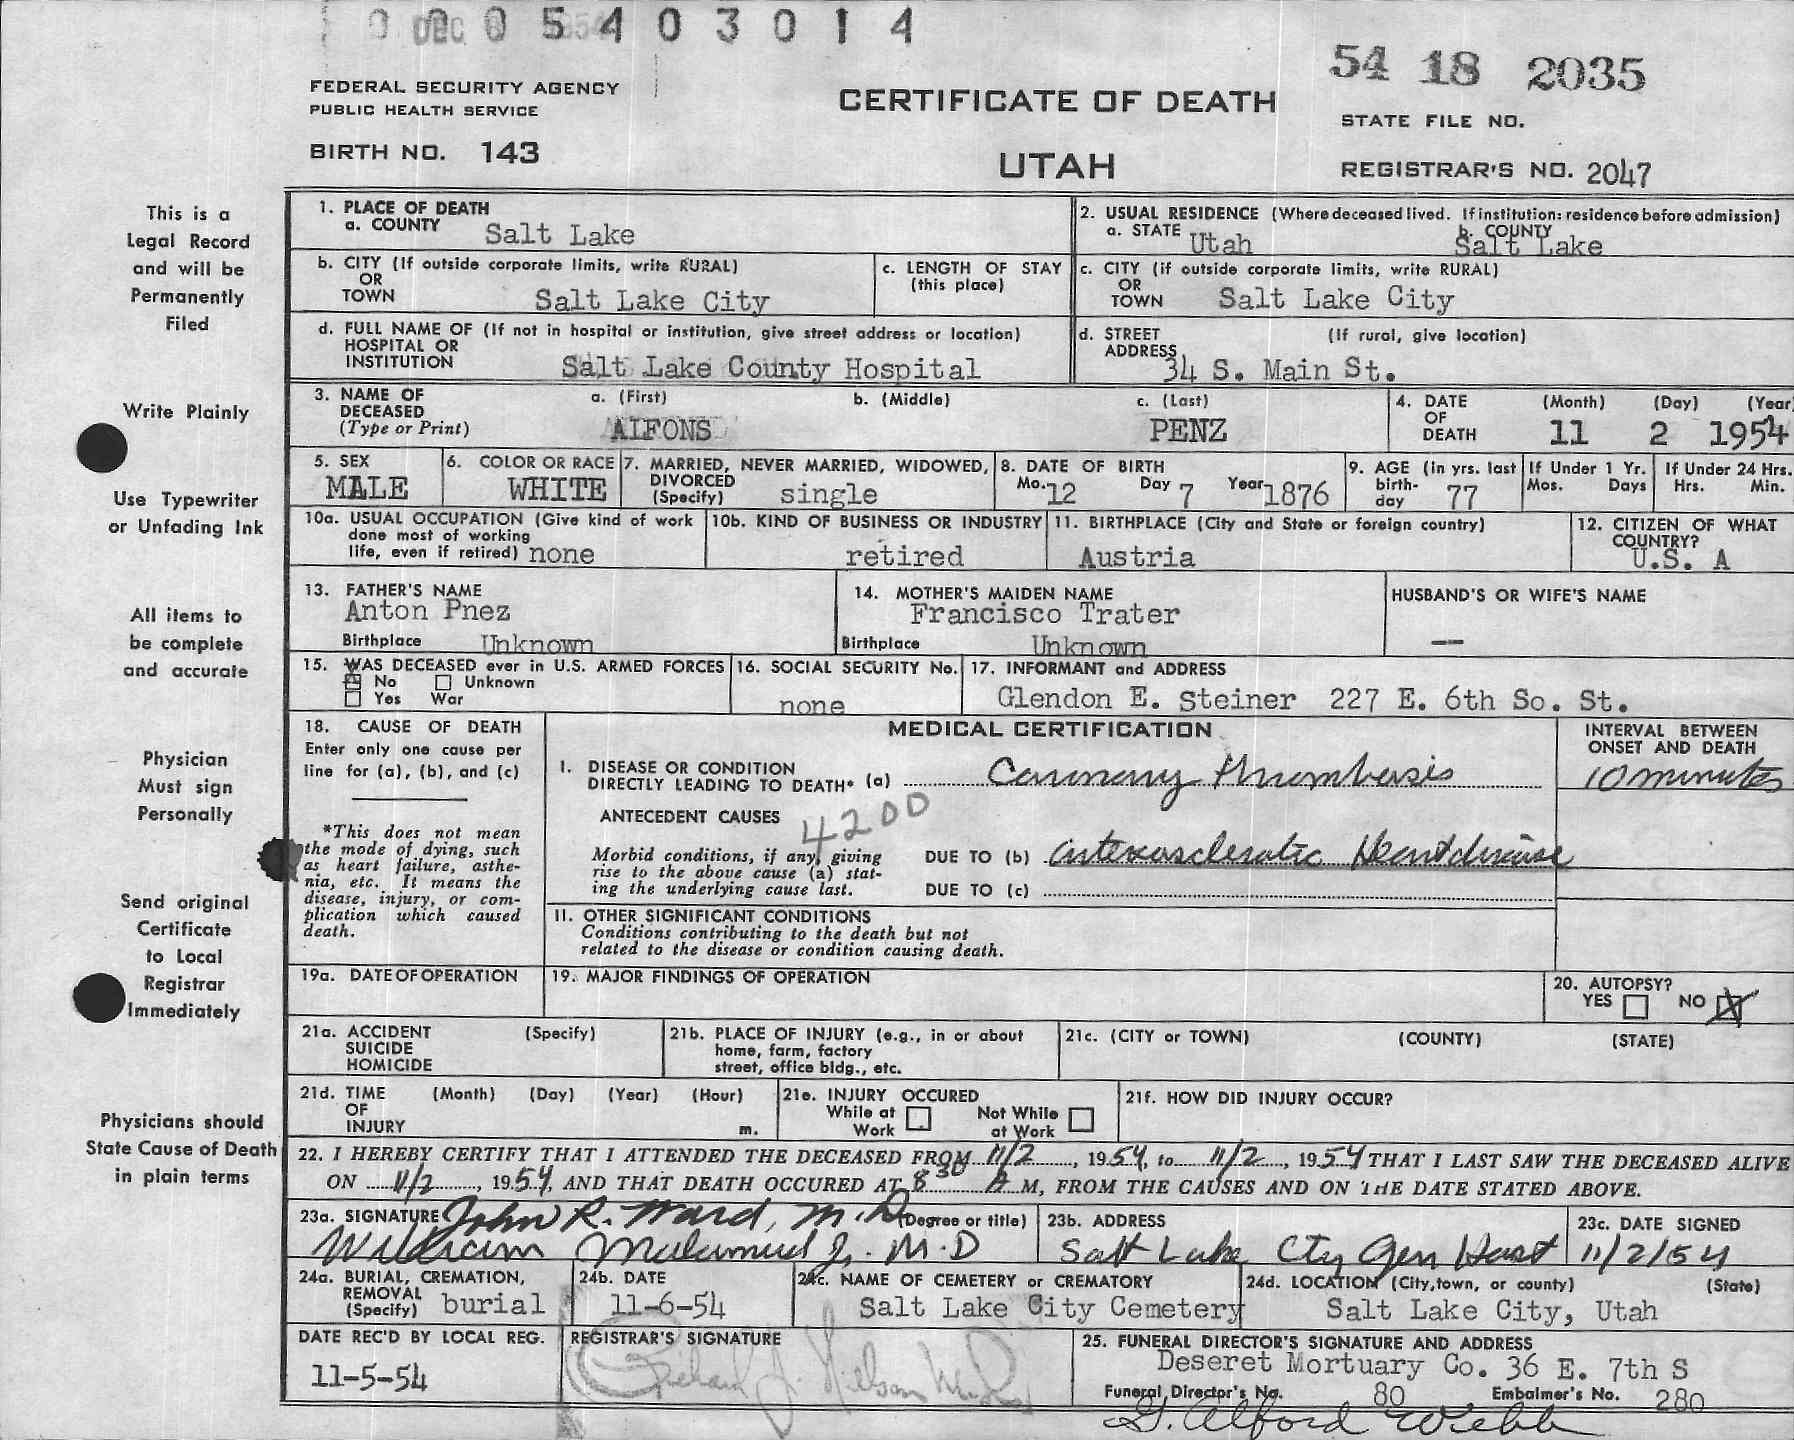 0 0 0 5 4 0 3 0 1 4
DEC 8 1954
54 18 2035
FEDERAL SECURITY AGENCY
PUBLIC HEALTH SERVICE
CERTIFICATE OF DEATH
STATE FILE NO.
BIRTH NO. 143
UTAH
REGISTRAR'S NO. 2047
This is a
Legal Record
and will be
Permanently
Filed
Write Plainly
Use Typewriter
or Unfading Ink
All items to
be complete
and accurate
Physician
Must sign
Personally
Send original
Certificate
to Local
Registrar
Immediately
Physicians should
State Cause of Death
in plain terms
1. PLACE OF DEATH
a. COUNTY Salt Lake
2. USUAL RESIDENCE (Where deceased lived. If institution: residence before admission)
a. STATE Utah b. COUNTY Salt Lake
b. CITY (If outside corporate limits, write RURAL)
OR
TOWN Salt Lake City
c. LENGTH OF STAY
(this place)
c. CITY (if outside corporate limits, write RURAL)
OR
TOWN Salt Lake City
d. FULL NAME OF (If not in hospital or institution, give street address or location)
HOSPITAL OR
INSTITUTION Salt Lake County Hospital
d. STREET (If rural, give location)
ADDRESS 34 S. Main St.
3. NAME OF a. (First) b. (Middle) c. (Last)
DECEASED
(Type or Print) ALFONS PENZ
4. DATE (Month) (Day) (Year)
OF
DEATH 11 2 1954
5. SEX
MALE
6. COLOR OR RACE
WHITE
7. MARRIED, NEVER MARRIED, WIDOWED,
DIVORCED
(Specify) single
8. DATE OF BIRTH
Mo. 12 Day 7 Year 1876
9. AGE (in yrs. last
birth-
day 77
If Under 1 Yr.
Mos. Days
If Under 24 Hrs.
Hrs. Min.
10a. USUAL OCCUPATION (Give kind of work
done most of working
life, even if retired) none
10b. KIND OF BUSINESS OR INDUSTRY
retired
11. BIRTHPLACE (City and State or foreign country)
Austria
12. CITIZEN OF WHAT
COUNTRY?
U.S. A
13. FATHER'S NAME
Anton Pnez
Birthplace Unknown
14. MOTHER'S MAIDEN NAME
Francisco Trater
Birthplace Unknown
HUSBAND'S OR WIFE'S NAME
--
15. WAS DECEASED ever in U.S. ARMED FORCES
No Unknown
Yes War
16. SOCIAL SECURITY No.
none
17. INFORMANT and ADDRESS
Glendon E. Steiner 227 E. 6th So. St.
18. CAUSE OF DEATH
Enter only one cause per
line for (a), (b), and (c)
*This does not mean
the mode of dying, such
as heart failure, asthe-
nia, etc. It means the
disease, injury, or com-
plication which caused
death.
MEDICAL CERTIFICATION
INTERVAL BETWEEN
ONSET AND DEATH
I. DISEASE OR CONDITION
DIRECTLY LEADING TO DEATH* (a) Coronary thrombosis 10 minutes
ANTECEDENT CAUSES 4200
Morbid conditions, if any, giving
rise to the above cause (a) stat-
ing the underlying cause last.
DUE TO (b) arteriosclerotic Heart disease
DUE TO (c)
II. OTHER SIGNIFICANT CONDITIONS
Conditions contributing to the death but not
related to the disease or condition causing death.
19a. DATE OF OPERATION
19. MAJOR FINDINGS OF OPERATION
20. AUTOPSY?
YES NO X
21a. ACCIDENT (Specify)
SUICIDE
HOMICIDE
21b. PLACE OF INJURY (e.g., in or about
home, farm, factory
street, office bldg., etc.
21c. (CITY or TOWN) (COUNTY) (STATE)
21d. TIME (Month) (Day) (Year) (Hour)
OF
INJURY m.
21e. INJURY OCCURED
While at Not While
Work at Work
21f. HOW DID INJURY OCCUR?
22. I HEREBY CERTIFY THAT I ATTENDED THE DECEASED FROM 11/2, 1954, to 11/2, 1954 THAT I LAST SAW THE DECEASED ALIVE
ON 11/2, 1954, AND THAT DEATH OCCURED AT 8 30 A M, FROM THE CAUSES AND ON THE DATE STATED ABOVE.
23a. SIGNATURE John R. Ward, M.D. (Degree or title)
William Jr. M.D
23b. ADDRESS
Salt Lake Cty Gen Hosp
23c. DATE SIGNED
11/2/54
24a. BURIAL, CREMATION,
REMOVAL
(Specify) burial
24b. DATE
11-6-54
24c. NAME OF CEMETERY or CREMATORY
Salt Lake City Cemetery
24d. LOCATION (City, town, or county) (State)
Salt Lake City, Utah
DATE REC'D BY LOCAL REG.
11-5-54
REGISTRAR'S SIGNATURE
Richard J. Nelson
25. FUNERAL DIRECTOR'S SIGNATURE AND ADDRESS
Deseret Mortuary Co. 36 E. 7th S
Funeral Director's No. 80 Embalmer's No. 280
G. Alford Webb